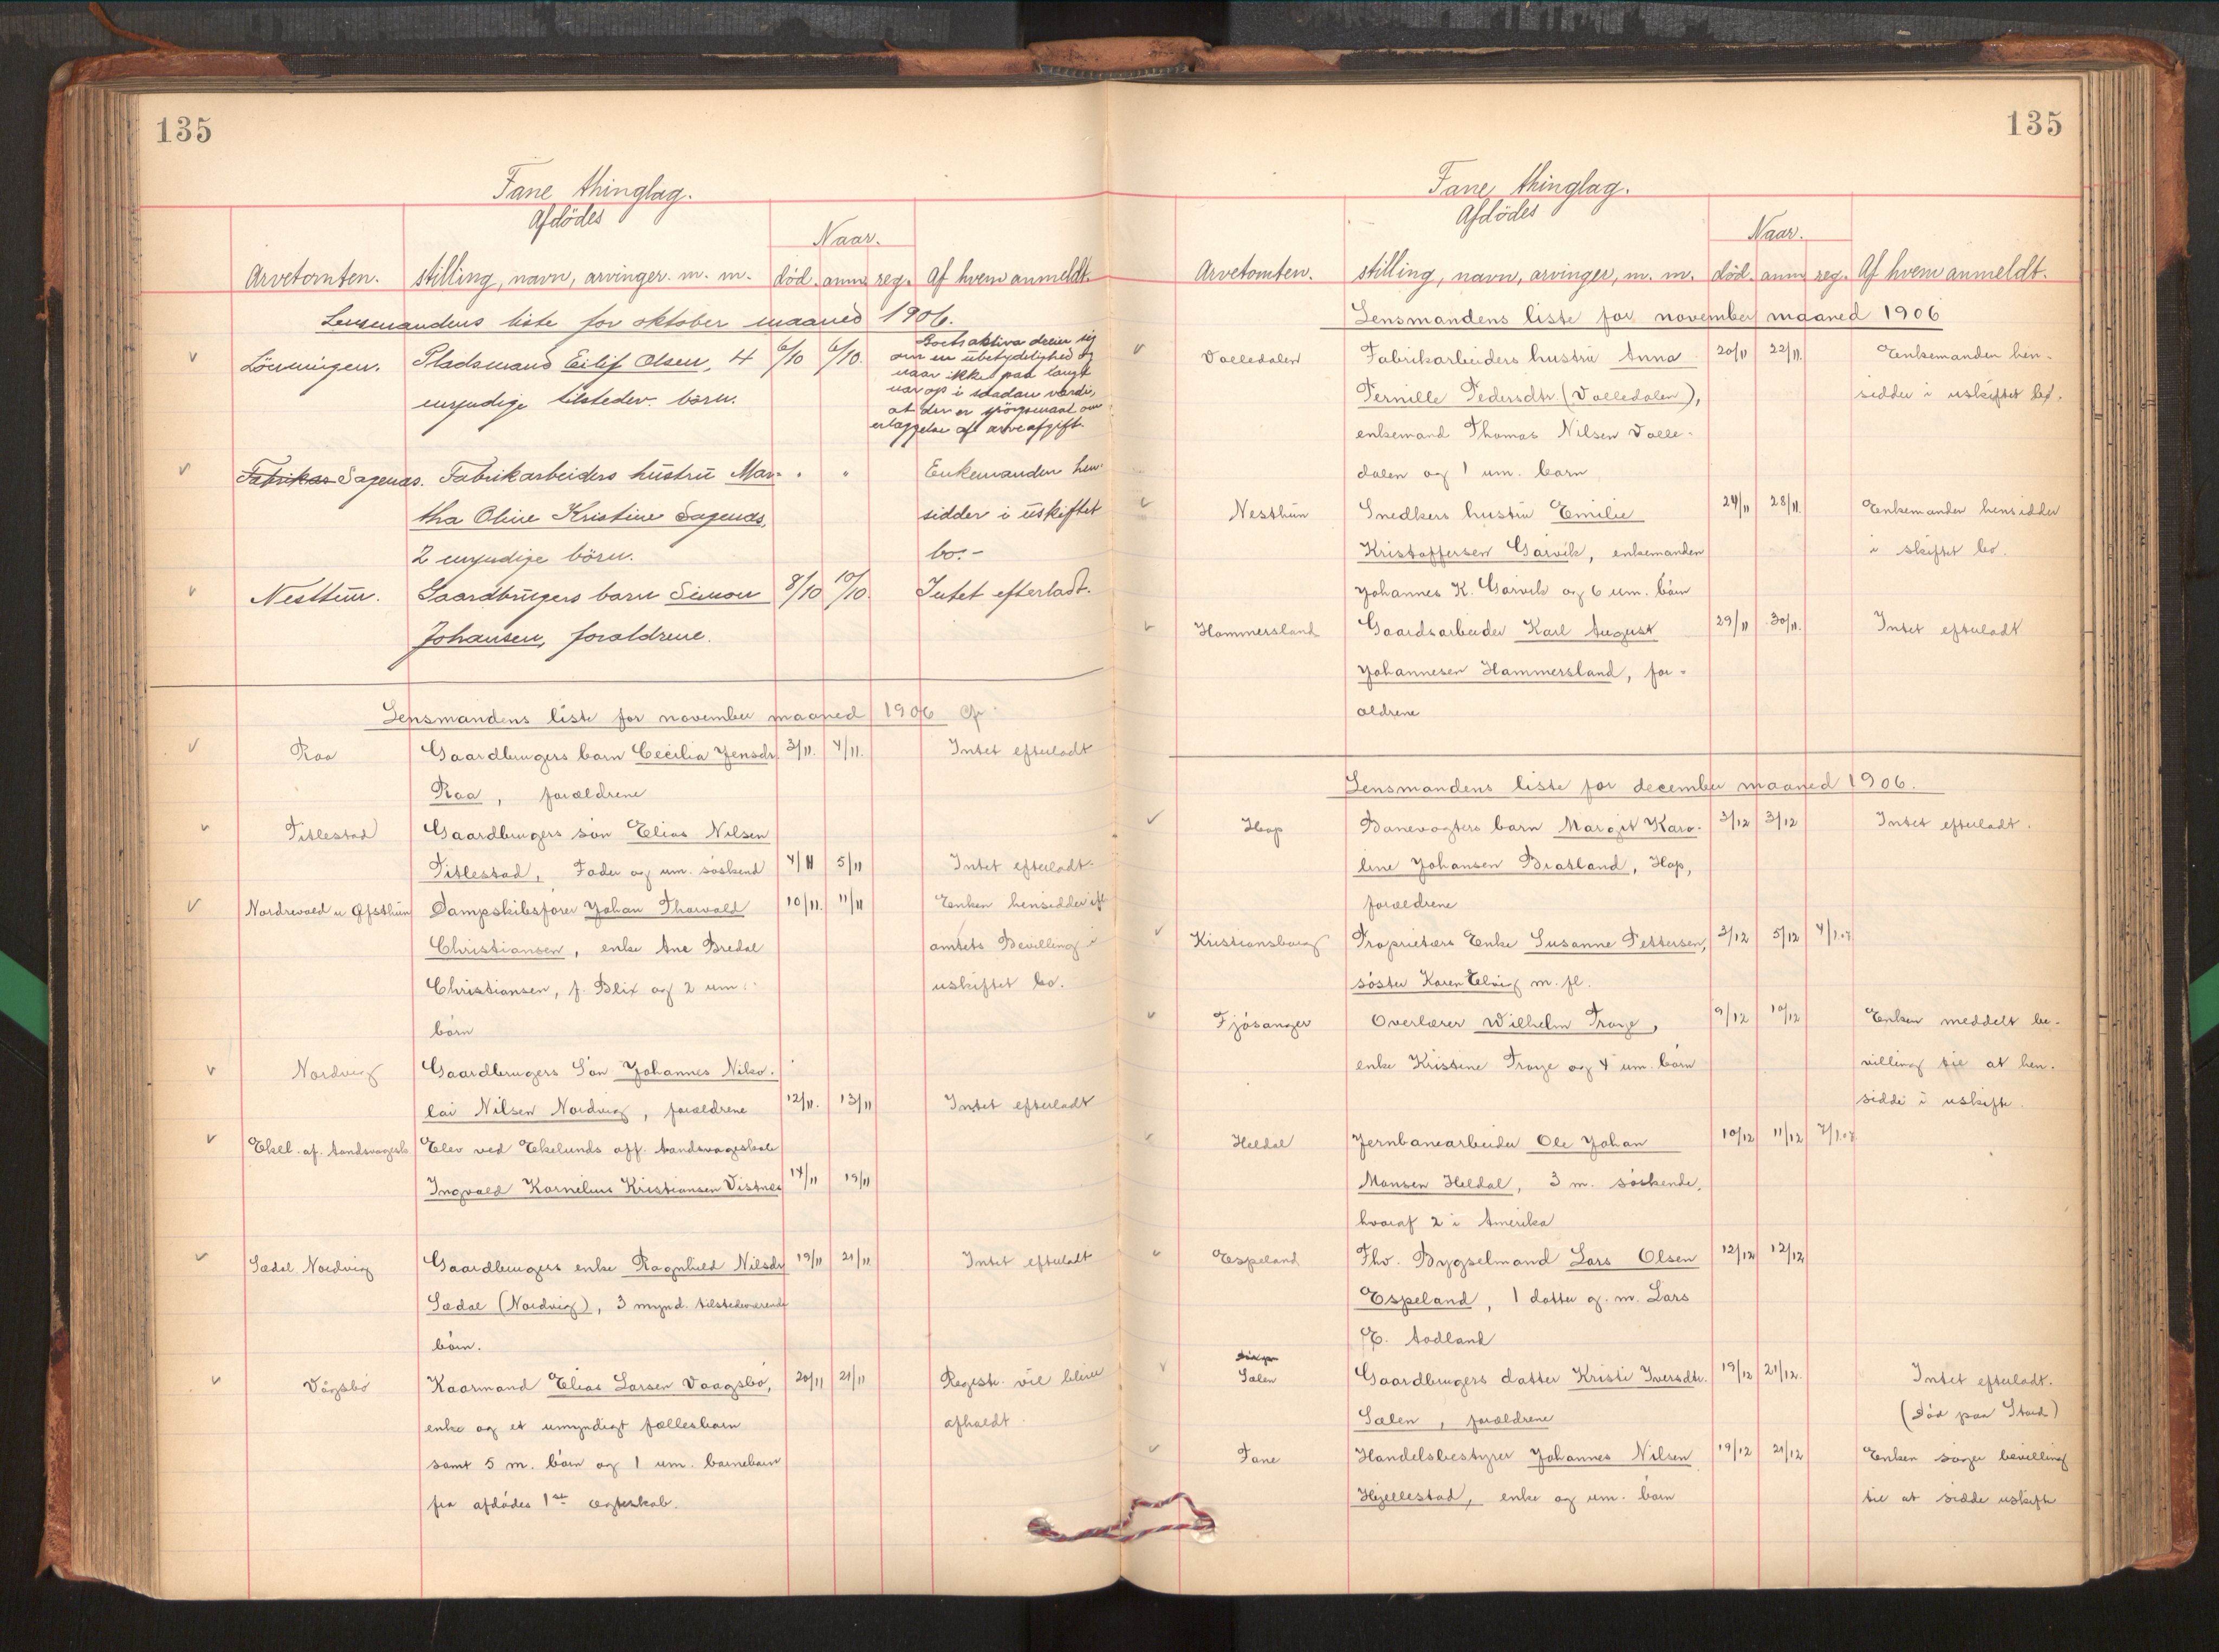 135
Fane thinglag.
Afdödes
Naar.
Arvetomten. stilling, navn, arvinger. m. m. död. anm. reg. Af hvem anmeldt.
Lensmandens liste for oktober maaned 1906.
Lönningen. Pladsmand Eilif Olsen, 4 6/10 6/10. Boets aktiva dreier sig
om en ubetydelighed og
naar ikke paa langt
nær op i saadan værdi,
umyndige tilstedev. börn.
at der er spörgsmaal om
erlæggelse af arveafgift.
Fabrikar Sagenæs. Fabrikarbeiders hustru Mar- " " Enkemanden hen-
tha Oline Kristine Sagenæs, sidder i uskiftet
2 umyndige börn. bo.-
Nesttun. Gaardbrugers barn Simon 8/10 10/10. Intet efterladt.
Johansen, forældrene.
Lensmandens liste for november maaned 1906
Raa Gaardbrugers barn Cecilia Jensdr. 3/11. 4/11. Intet efterladt
Raa, forældrene
Titlestad Gaardbrugers sön Elias Nilsen
Titlestad, Fader og um. söskend 4/11 5/11 Intet efterladt.
Nordrevold u Øfsthun Dampskibsförer Johan Thorvald 10/11. 11/11 Enken hensidder ift
Christiansen, enke Ane Bredal amtets Bevilling i
Christiansen, f. Blix og 2 um. uskiftet bo.
börn
Nordvig Gaardbrugers Sön Johannes Niko-
lai Nilsen Nordvig, forældrene 12/11. 13/11 Intet efterladt
Ekel. af. Aandsvagesk. Elev ved Ekelunds aff. Aandsvageskole
Ingvald Kornelius Kristiansen Vistnes 14/11 19/11
Sædal Nordvig Gaardbrugers enke Ragnhild Nilsdr 19/11 21/11 Intet efterladt
Sædal (Nordvig), 3 mynd. tilstedeværende
börn.
Vågsbö Kaarmand Elias Larsen Vaagsbö, 20/11 21/11 Registr. vil blive
enke og et umyndigt fællesbarn afholdt
samt 5 m. börn og 1 um. barnebarn
fra afdödes 1ste ægteskab.
135
Fane thinglag.
Afdödes
Naar.
Arvetomten. stilling, navn, arvinger, m. m. död. anm. reg. Af hvem anmeldt.
Lensmandens liste for november maaned 1906
Volledalen Fabrikarbeiders hustru Anna 20/11 22/11. Enkemanden hen-
Pernille Pedersdtr. (Volledalen), sidder i uskiftet bo.
enkemand Thomas Nilsen Volle-
dalen og 1 um. barn
Nesthun Snedkers hustru Emilie 24/11 28/11. Enkemanden hensidder
Kristoffersen Garvik, enkemanden i skiftet bo.
Johannes K. Garvik og 6 um. börn
Hammersland Gaardsarbeider Karl August 29/11 30/11. Intet efterladt
Johannesen Hammersland, for-
ældrene
Lensmandens liste for december maaned 1906.
Hop Banevogters barn Margit Karo- 3/12 3/12 Intet efterladt.
line Johansen Bratland, Hop,
forældrene
Kristiansborg Proprietærs Enke Susanne Pettersen, 3/12 5/12 4/1.07
söster Karen Elvig m. fl.
Fjösanger Overlærer Wilhelm Troye, 9/12 10/12 Enken meddelt be-
enke Kristine Troye og 4 um. börn villing til at hen-
sidde i uskifte.
Heldal Jernbanearbeider Ole Johan 10/12 11/12 7/1.07
Monsen Heldal, 3 m. söskende,
hvoraf 2 i Amerika
Espeland Fhv. Bygselmand Lars Olsen 12/12 12/12
Espeland, 1 datter g. m. Lars
E. Aadland
Sælen Gaardbrugers datter Kristi Iversdtr. 19/12 21/12. Intet efterladt.
Sælen, forældrene (död paa Stord)
Fane Handelsbestyrer Johannes Nilsen 19/12 21/12 Enken söger bevilling
Hjellestad, enke og um. börn til at sidde uskifte